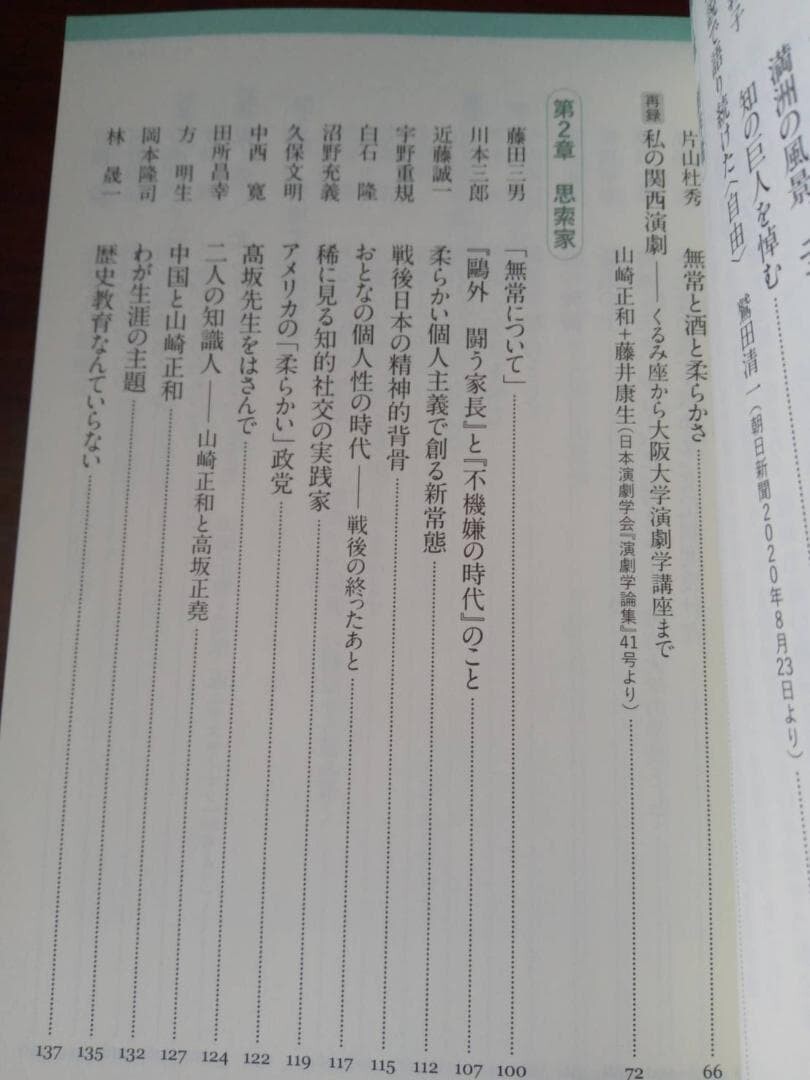 満洲の風景
知の巨人を悼む
語り続けた〈自由〉 鷲田清一（朝日新聞2020年8月23日より）
片山杜秀 無常と酒と柔らかさ 66
再録 私の関西演劇――くるみ座から大阪大学演劇学講座まで
山崎正和＋藤井康生（日本演劇学会『演劇学論集』41号より） 72
第2章 思索家
藤田三男 「無常について」 100
川本三郎 『鷗外 闘う家長』と『不機嫌の時代』のこと 107
近藤誠一 柔らかい個人主義で創る新常態 112
宇野重規 戦後日本の精神的背骨 115
白石 隆 おとなの個人性の時代――戦後の終ったあと 117
沼野充義 稀に見る知的社交の実践家 119
久保文明 アメリカの「柔らかい」政党 122
中西 寛 高坂先生をはさんで 124
田所昌幸 二人の知識人――山崎正和と高坂正堯 127
方 明生 中国と山崎正和 132
岡本隆司 わが生涯の主題 135
林 晟一 歴史教育なんていらない 137